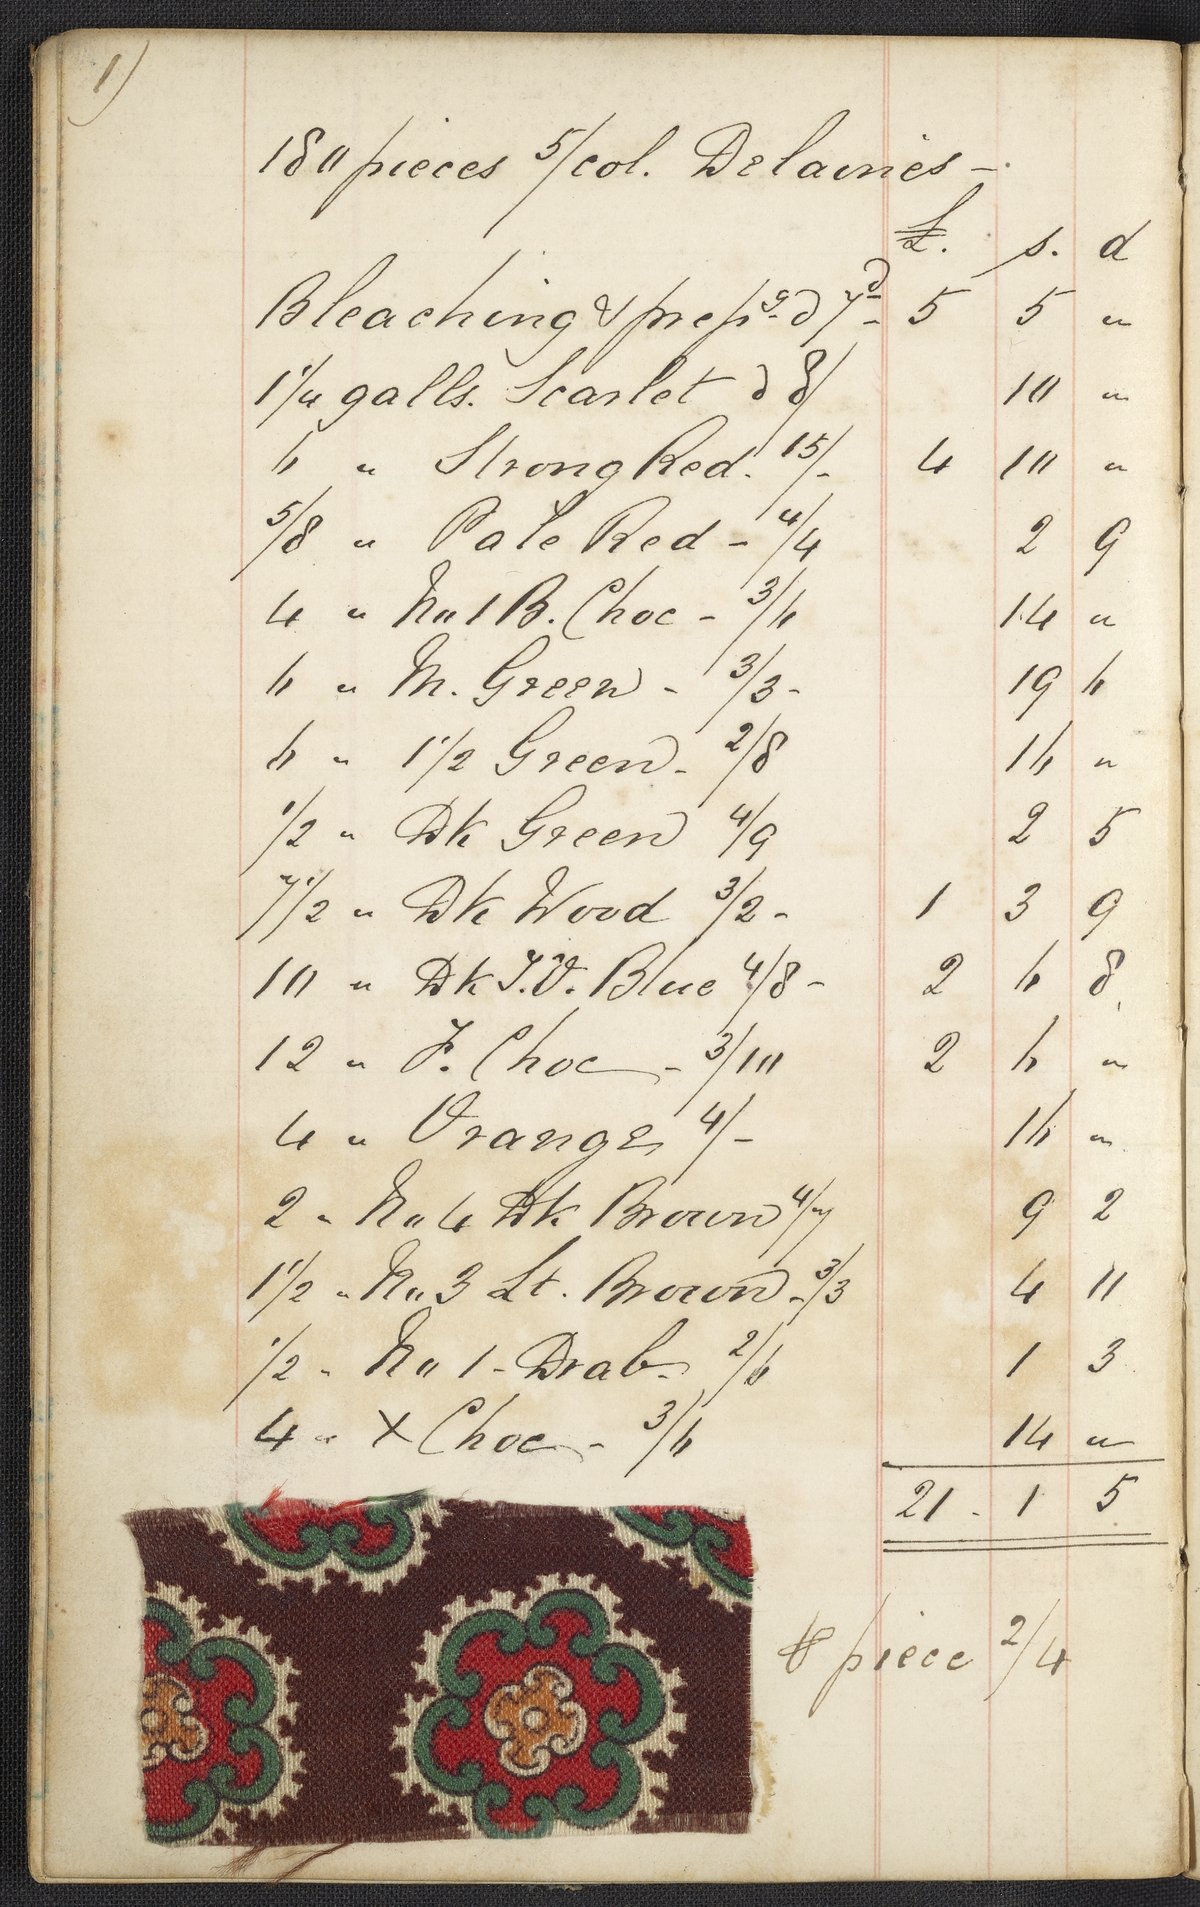 1)
180 pieces 5/col. Delaines -
£. s. d
Bleaching & prepg. @ 7d - 5 5 "
1 1/4 galls. Scarlet @ 8/ 10 "
6 " Strong Red. 15/- 4 10 "
5/8 " Pale Red - 4/4 2 9
4 " No 1 B. Choc - 3/6 14 "
6 " M. Green - 3/3 - 19 6
6 " 1 1/2 Green - 2/8 16 "
1/2 " Dk Green 4/9 2 5
7 1/2 " Dk Wood 3/2 - 1 3 9
10 " Dk Blue 4/8 - 2 6 8
12 " F. Choc - 3/10 2 6 "
4 " Orange 4/- 16 "
2 " No 4 Dk Brown 4/7 9 2
1 1/2 " No 3 Lt. Brown - 3/3 4 11
1/2 " No 1 - Drab - 2/6 1 3
4 " X Choc - 3/6 14 "
21 - 1 5
⅌ piece 2/4